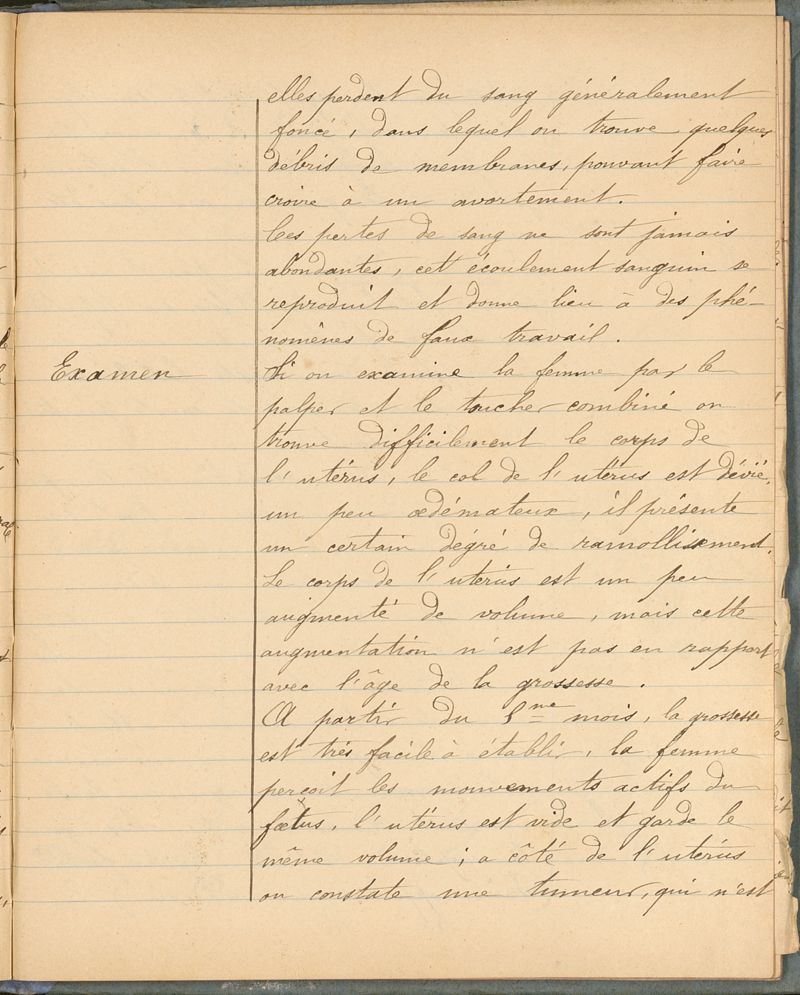 elles perdent du sang généralement
foncé, dans lequel on trouve quelques
débris de membranes, pouvant faire
croire à un avortement.
Ces pertes de sang ne sont jamais
abondantes, cet écoulement sanguin se
reproduit et donne lieu à des phé-
nomènes de faux travail.
Examen
Si on examine la femme par le
palper et le toucher combiné on
trouve difficilement le corps de
l'utérus, le col de l'utérus est dévié,
un peu œdémateux, il présente
un certain dégré de ramollissement.
Le corps de l'utérus est un peu
augmenté de volume, mais cette
augmentation n'est pas en rapport
avec l'âge de la grossesse.
A partir du 5me mois, la grossesse
est très facile à établir, la femme
perçoit les mouvements actifs du
fœtus, l'utérus est vide et garde le
même volume ; a côté de l'utérus
on constate une tumeur, qui n'est